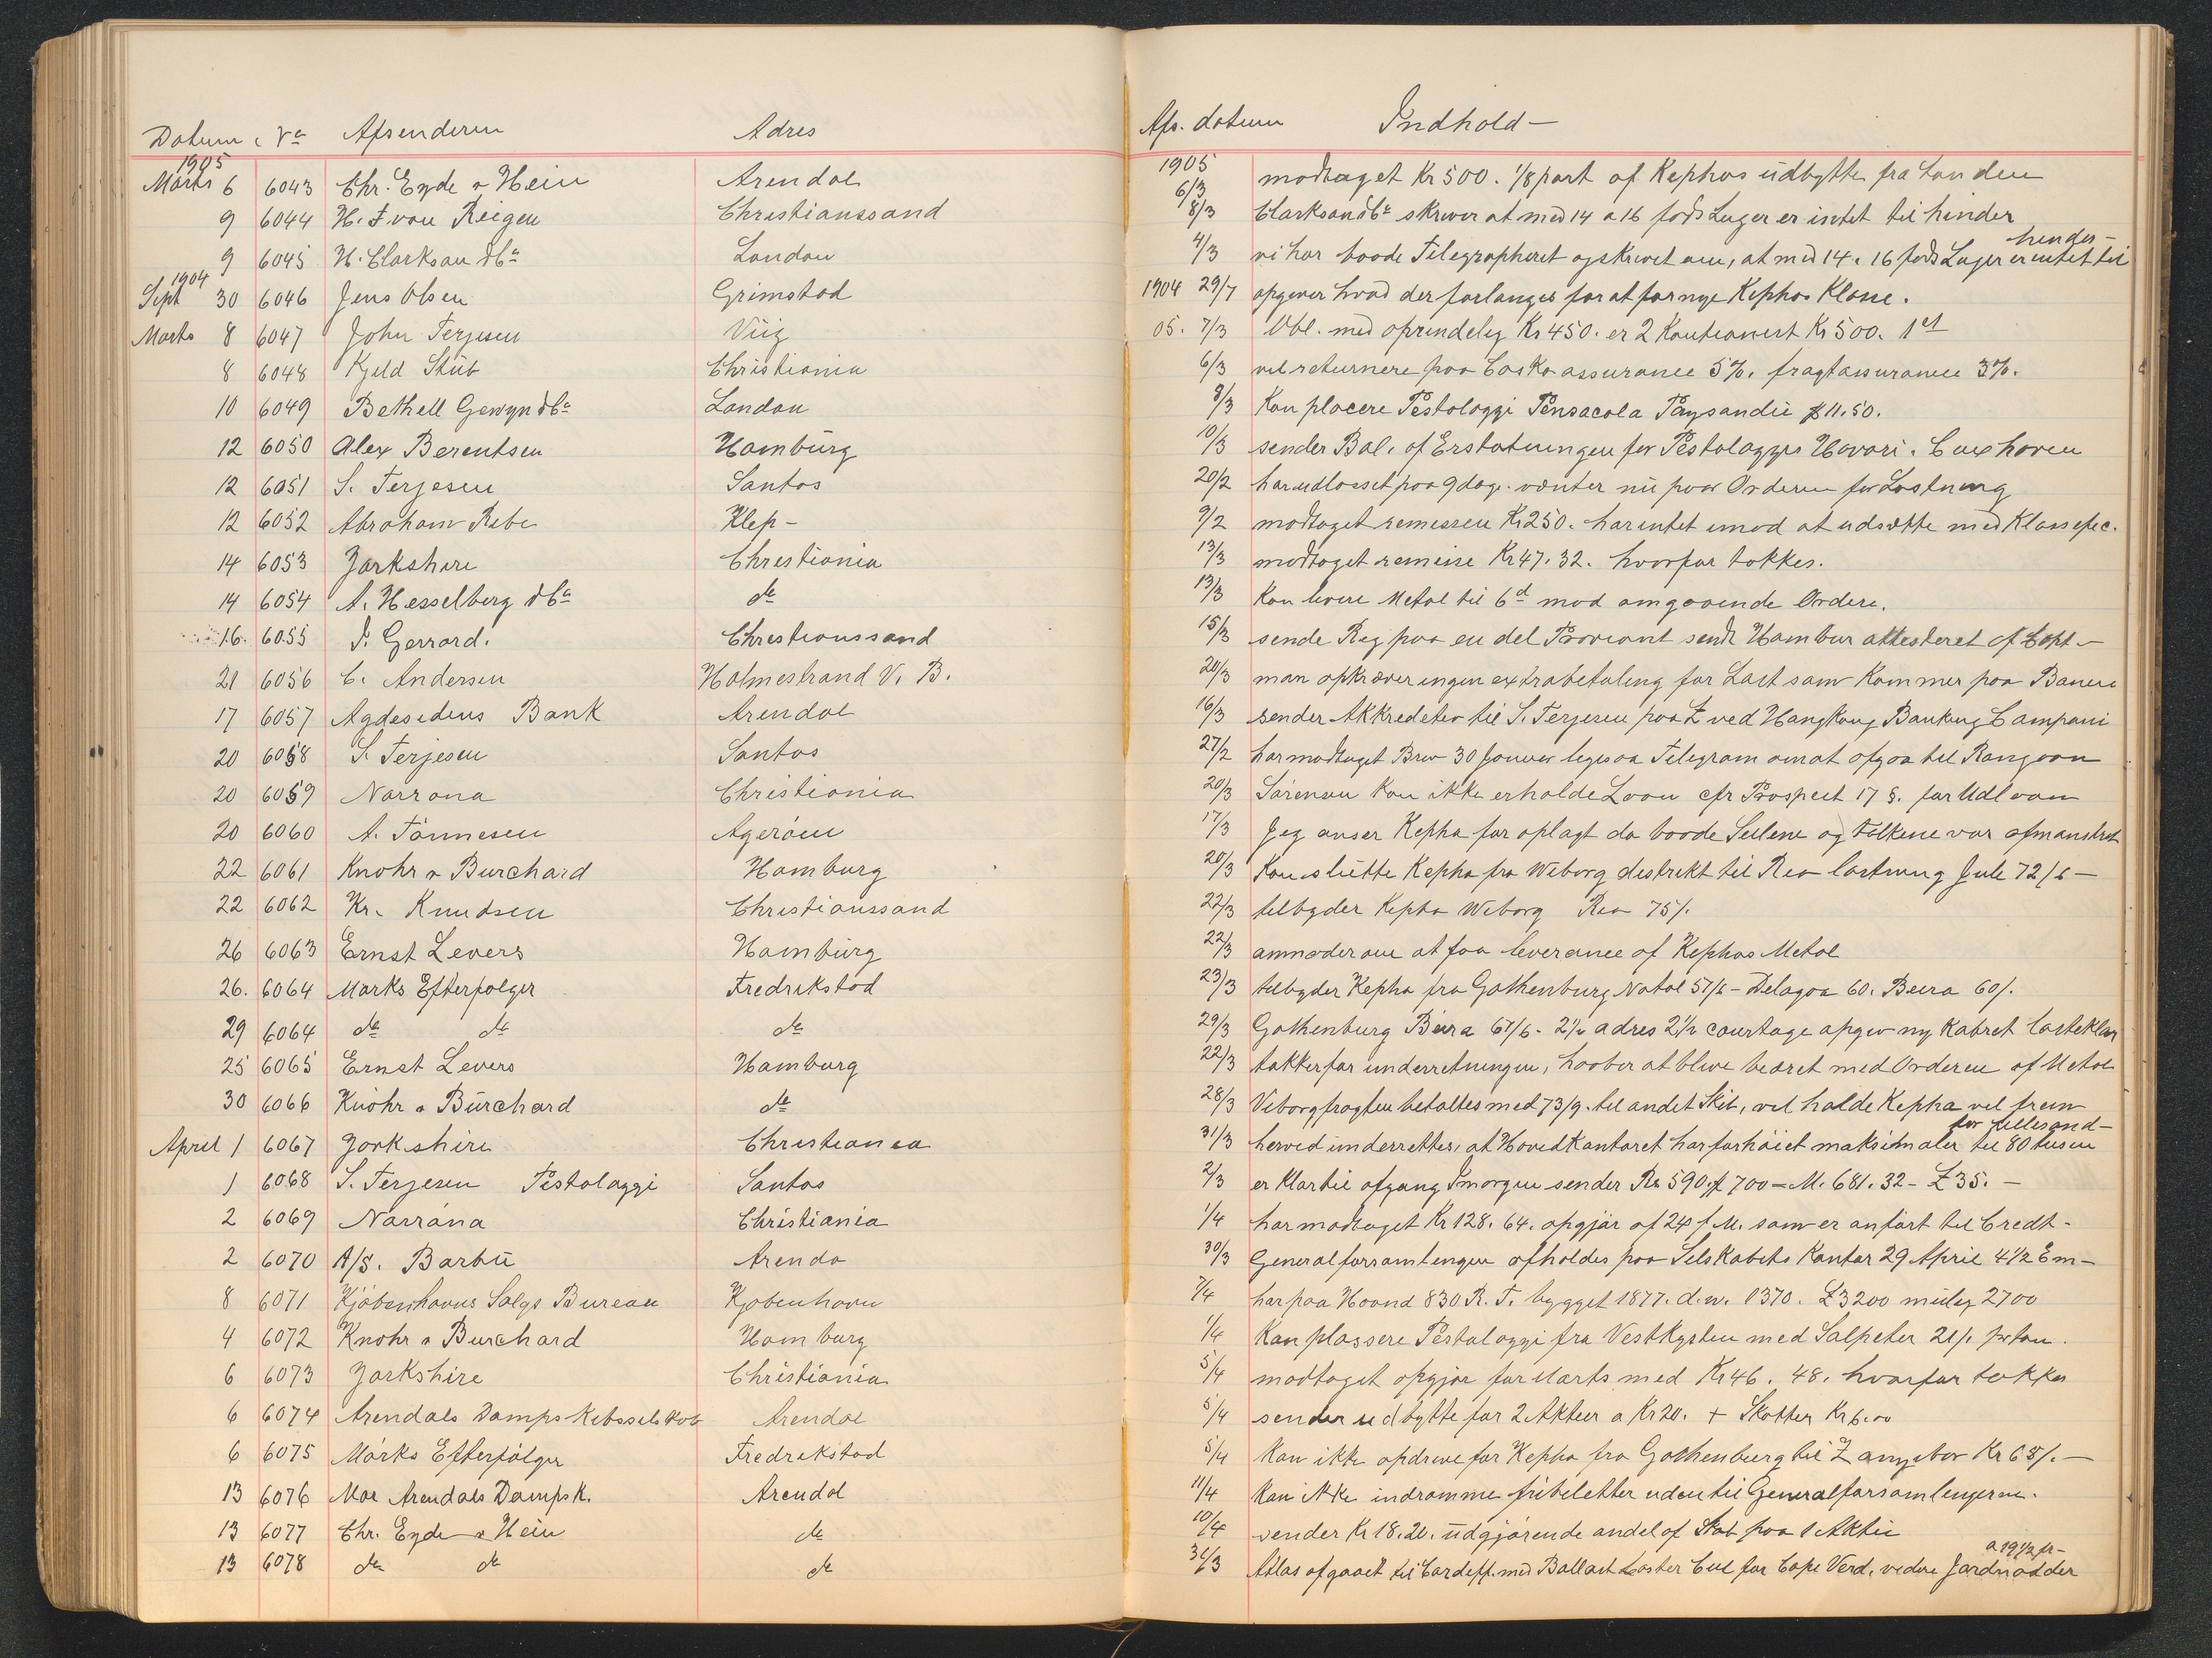 Datum Nº Afsenderen Adres
1905
Marts 6 6043 Chr. Eyde & Hein Arendal
9 6044 H. F van Reigen Christianssand
9 6045 H. Clarkson & Cº London
1904
Sept 30 6046 Jens Olsen Grimstad
Marts 8 6047 John Terjesen Viig
8 6048 Kjeld Stub Christiania
10 6049 Bethell Gewyn & Cº London
12 6050 Alex Berentsen Hamburg
12 6051 S. Terjesen Santos
12 6052 Abraham Rebe Klep-
14 6053 Yorkshire Christiania
14 6054 A. Hesselberg & Cº do
16. 6055 J. Gerrard. Christianssand
21 6056 C. Andersen Holmestrand V. B.
17 6057 Agdesidens Bank Arendal
20 6058 S. Terjesen Santos
20 6059 Norrona Christiania
20 6060 A. Tönnesen Ageröen
22 6061 Knohr & Burchard Hamburg
22 6062 Kr. Knudsen Christianssand
26 6063 Ernst Levers Hamburg
26. 6064 Marks Efterfølger Fredrikstad
29 6064 do do do
25 6065 Ernst Levers Hamburg
30 6066 Knöhr & Burchard do
April 1 6067 Yorkshire Christiania
1 6068 S. Terjesen Pestalozzi Santos
2 6069 Norröna Christiania
2 6070 A/S. Barbu Arenda
8 6071 Kjöbenhavns Salgs Bureau Kjobenhavn
4 6072 Knohr & Burchard Hamburg
6 6073 Yorkshire Christiania
6 6074 Arendals Dampskibsselskab Arendal
6 6075 Mörks Efterfölger Fredrikstad
13 6076 Noe Arendals Dampsk. Arendal
13 6077 Chr. Eyde & Hein do
13 6078 do do do
Afs. datum Indhold-
1905
6/3 modtaget Kr 500. 1/8 part af Kephas udbytte fra London
8/3 Clarkson & Cº skriver at med 14 a 16 fods Luger er intet til hinder
4/3 vi har baade Telegrapheret og skrevet om, at med 14 a 16 fods Luger er intet til hinder-
1904 29/7 opgiver hvad der forlanges for at fornye Kephas Klasse.
05. 7/3 Obl. med oprindelig Kr 450. er 2 Kautionist Kr 500. 1 et
6/3 vil returnere paa Casko assurance 5%. fragtassurance 3%.
8/3 Kan placere Pestalozzi Pensacola Paysandu $ 11.50.
10/3 sender Bal. af Erstatningen for Pestalozzis Havari. Cuxhaven
20/2 har udlosset paa 9 dage. venter nu paa Orderen for Lastning
9/2 modtaget remessen Kr 250. har intet imod at udsætte med Klassefic.
13/3 modtaget remisse Kr 47.32. hvorfor takkes.
13/3 Kan levere Metal til 6d mod omgaaende Ordere.
15/3 sende Reg paa en del Proviant sendt Hambur attesteret af Capt-
20/3 man opkræver ingen extrabetaling for Last som Kommer paa Banen
16/3 sender Akkreditiv til S. Terjesen paa £ ved Hangkong Banking Compani
27/2 har modtaget Brev 30 Januar ligesaa Telegram om at afgaa til Rangoon
20/3 Sörensen Kan ikke erholde Laan cfr Prospect 17 §. for Udlaan
17/3 Jeg anser Kepha for oplagt da baade Seilene og Folkene var afmønstret
20/3 Kan slutte Kepha fra Wiborg destrikt til Rio lastning Jule 72/6-
22/3 tilbyder Kepha Wiborg Rio 75/.
22/3 anmoder om at faa leverance af Kephas Metal
23/3 tilbyder Kepha fra Gothenburg Natal 57/6- Delagoa 60. Beira 60/.
29/3 Gothenburg Beira 67/6. 2½ adres 2½ courtage opgiv ny Kabret lasteklar
22/3 takker for underretningen, haaber at blive beæret med Orderen af Metal
28/3 Viborgfragten betaltes med 73/9. til andet Skib, vil holde Kepha vel frem
31/3 herved underrettes, at Hovedkontoret har forhöiet maksimaler for Lillesand- til 80 tusen
2/3 er Klar til afgang Imorgen sender Rs 590. f 700 = M. 681.32- £ 35.-
1/4 har modtaget Kr 128.64. opgjör af 24 f M. som er anfört til Credt-
30/3 Generalforsamlingen afholdes paa Selskabets Kontor 29 April 4½ Em-
7/4 har paa Haand 830 R. T. bygget 1877. d.w. 1370. £3200 mulig 2700
1/4 Kan plassere Pestalozzi fra Vestkysten med Salpeter 21/. pr ton.
5/4 modtaget opgjör for Marts med Kr 46.48. hvorfor takkes
5/4 sender udbytte for 2 Aktier a Kr 20. + Skatter Kr 6.00
5/4 Kan ikke opdrive for Kepha fra Gothenburg til Z Kr 65/.-
11/4 Kan ikke indrømme fribiletter uden til Generalforsamlingerne.
10/4 sender Kr 18.20. udgjørende andel af Skat paa 1 Aktie
31/3 Atlas afgaaet til Cardiff. med Ballast Laster Cul for Cape Verd. videre Jordnødder a 19½ fr-